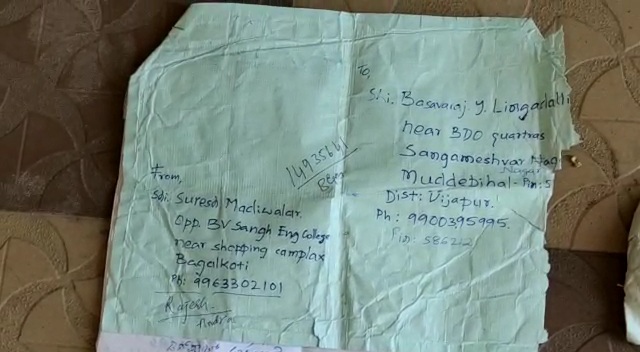 To,
Shi. Basavaraj y. Lingadalli
near BDO quartras
Sangameshvar Nag
Nagar
Muddebihal - Pin: 5
Dist: Vijapur.
Ph: 9900395995.
Pin: 586212
1493564
From,
Sdi. Suresh Madiwalar.
Opp. BV Sangh Eng College
near shopping camplax
Bagalkoti
Ph: 9963302101
Rajesh.